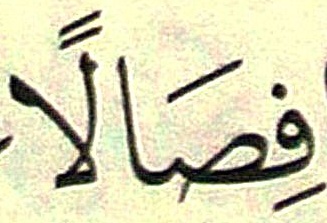 فِصَالًا